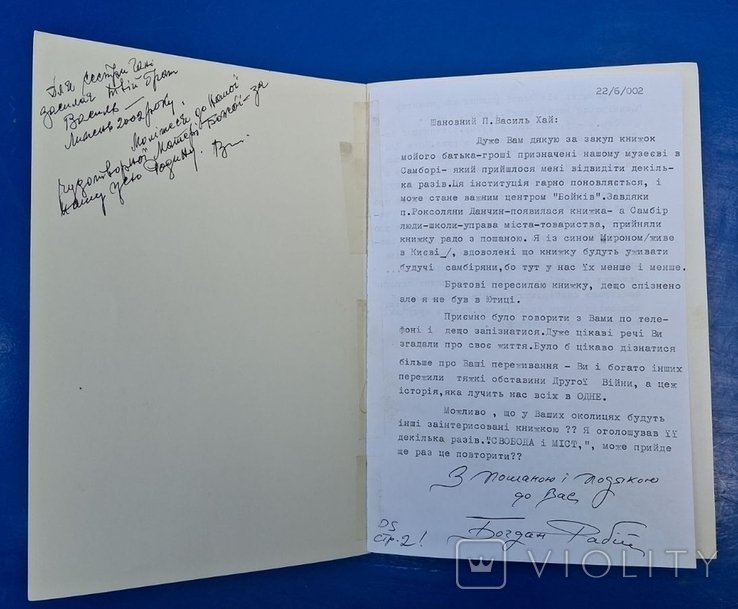 Для сестри Гані
засилая твій брат
Василь —
Липень 2002 року.
Молімся до Нашої
Чудотворної Матері Божої — за
нашу цілу Родину.
22/6/002
Шановний П.Василь Хай:
Дуже Вам дякую за закуп книжок
мойого батька-гроші призначені нашому музеєві в
Самборі- який прийшлося мені відвідити декіль-
ка разів.Ця інституція гарно поновляється, і
може стане важним центром "Бойків".Завдяки
п.Роксоляни Данчин-появилася книжка- а Самбір
люди-школи-управа міста-товариства, прийняли
книжку радо з пошаною. Я із сином Мироном/живе
в Києві_/, вдоволені що книжку будуть уживати
будучі самбіряни,бо тут у нас їх менше і менше.
Братові пересилаю книжку, дещо спізнено
але я не був в Ютиці.
Приємно було говорити з Вами по теле-
фоні і дещо запізнатися.Дуже цікаві речі Ви
згадали про своє життя.Було б цікаво дізнатися
більше про Ваші переживання - Ви і богато інших
пережили тяжкі обставини Другої Війни, а цеж
історія,яка лучить нас всіх в ОДНЕ.
Можливо , що у Ваших околицях будуть
інші заінтерисовані книжкою ?? Я оголошував її
декілька разів."СВОБОДА і МІСТ,", може прийде
ще раз це повторити??
З пошаною і подякою
до Вас
Богдан
DS
стр.2!
VIOLITY